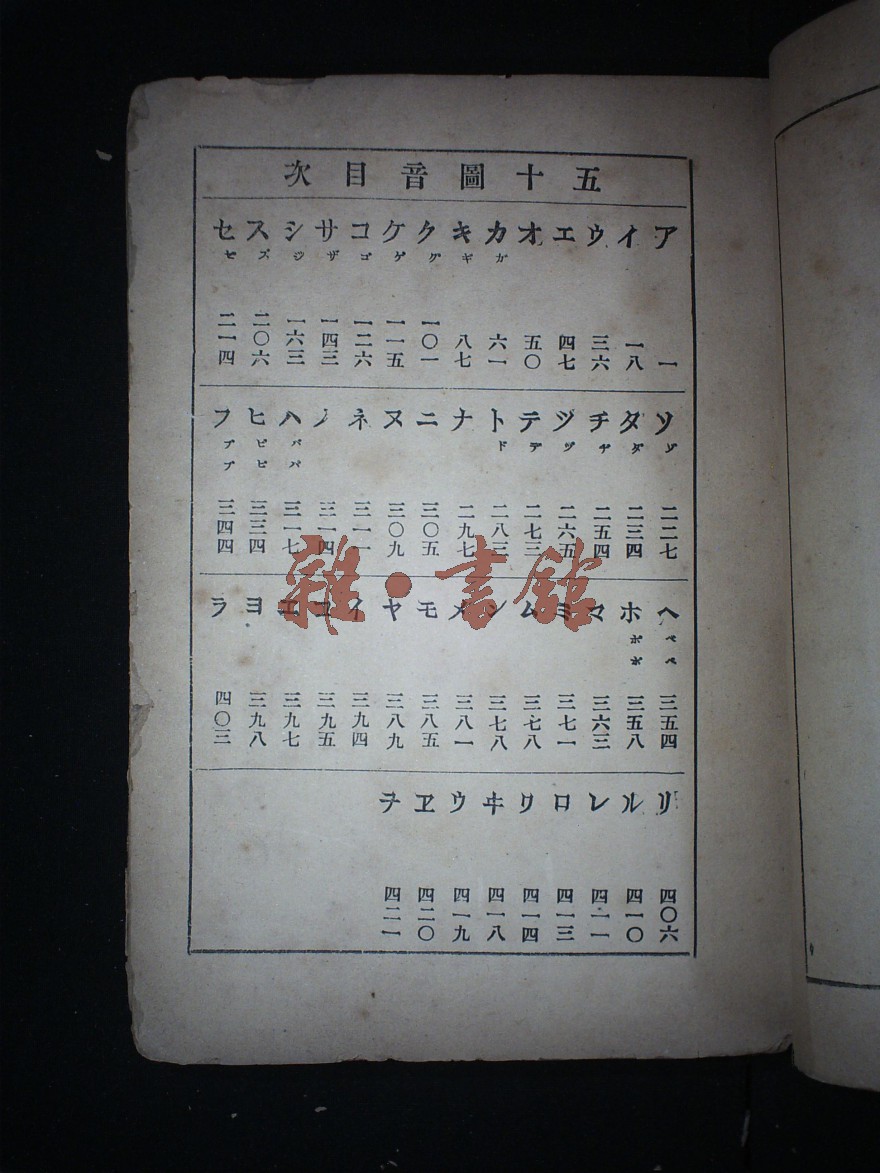 五十圖音目次
ア 一
イ 一八
ウ 三六
エ 四七
オ 五〇
カ ガ 六一
キ ギ 八七
ク グ 一〇一
ケ ゲ 一一五
コ ゴ 一二六
サ ザ 一四三
シ ジ 一六三
ス ズ 二〇六
セ ゼ 二一四
ソ ゾ 二二七
タ ダ 二三四
チ ヂ 二五四
ツ ヅ 二六五
テ デ 二七三
ト ド 二八三
ナ 二九七
ニ 三〇五
ヌ 三〇九
ネ 三一一
ノ 三一四
ハ バ パ 三一七
ヒ ビ ピ 三三四
フ ブ プ 三四四
ヘ ベ ペ 三五四
ホ ボ ポ 三五八
マ 三六三
ミ 三七一
ム 三七八
ン 三七八
メ 三八一
モ 三八五
ヤ 三八九
イ 三九四
ユ 三九五
エ 三九七
ヨ 三九八
ラ 四〇三
リ 四〇六
ル 四一〇
レ 四一一
ロ 四一三
ワ 四一四
ヰ 四一八
ウ 四一九
ヱ 四二〇
ヲ 四二一
雜·書館